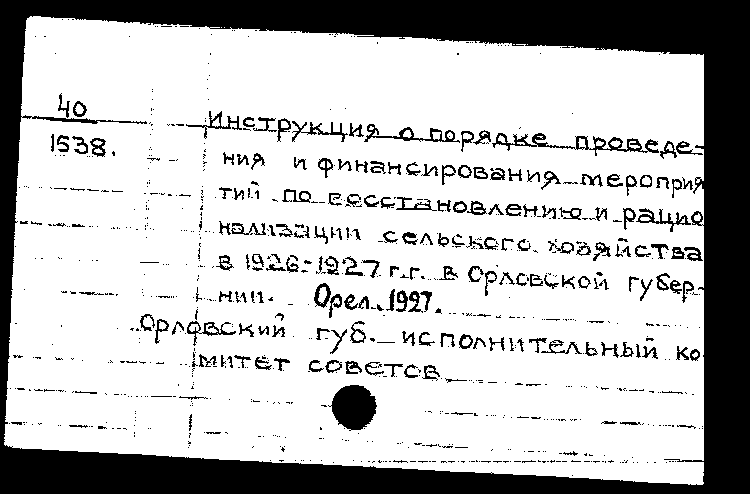 40
1538.
Инструкция о порядке проведе-
ния и финансирования мероприя
тий по восстановлению и рацио
нализации сельского хозяйства
в 1926-1927 г.г. в Орловской губер-
нии. Орел. 1927.
Орловский губ. исполнительный ко
митет советов